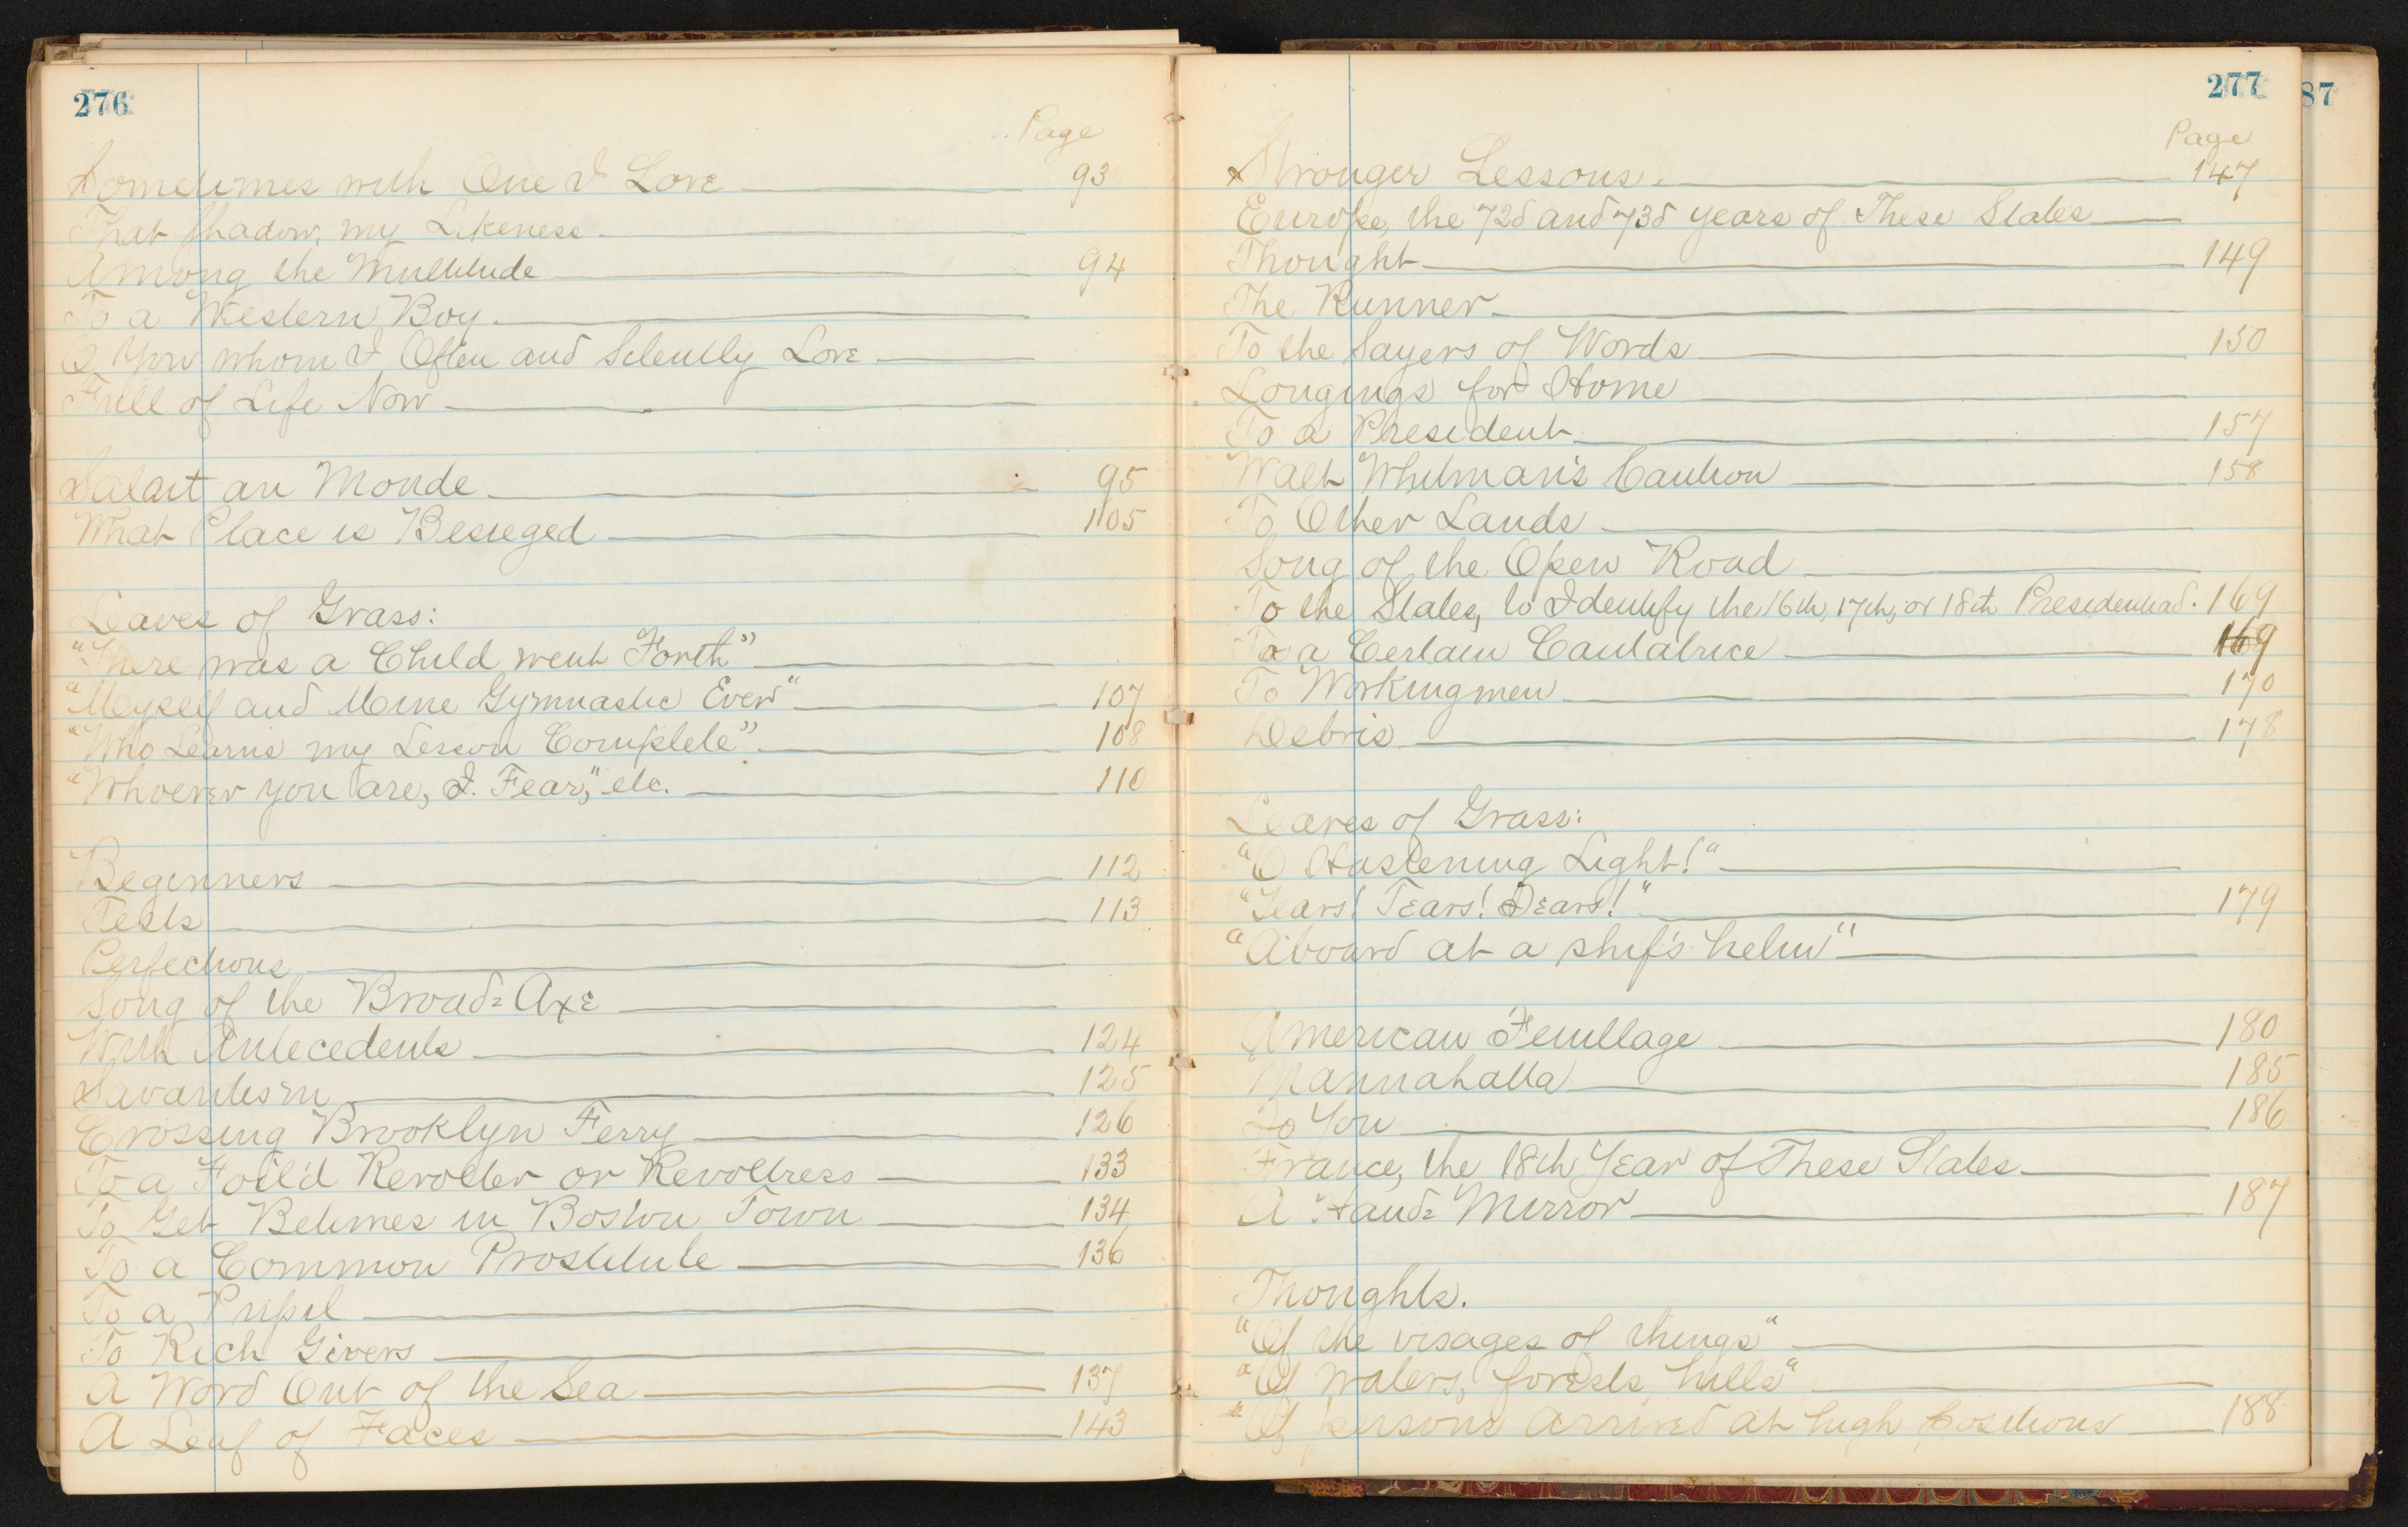 276
Page
Sometimes with One I Love 93
That Shadow, my Likeness.
Among the Multitude 94
To a Western Boy.
O You whom I Often and Silently Love
Full of Life Now
Salaut au Monde 95
What Place is Besieged 105
Leaves of Grass:
"There was a Child went Forth"
"Myself and Mine Gymnastic Ever" 107
"Who Learns my Lesson Complete" 108
"Whoever you are, I. Fear," etc. 110
Beginners 112
Tests 113
Perfections
Song of the Broad=Axe
With Antecedents 124
Savantism 125
Crossing Brooklyn Ferry 126
To a Foil'd Revolter or Revoltress 133
To Get Betimes in Boston Town 134
To a Common Prostitute 136
To a Pupil
To Rich Givers
A Word Out of the Sea 137
A Leaf of Faces 143
277
87
Page
Stronger Lessons. 147
Europe, the 72d and 73d years of These States
Thought 149
The Runner
To the Sayers of Words 150
Longings for Home
To a President 157
Walt Whitman's Caution 158
To Other Lands
Song of the Open Road
To the States, to Identify the 16th, 17th, or 18th Presidentiad. 169
To a Certain Cantatrice 169
To Workingmen 170
Debris 178
Leaves of Grass:
"O Hastening Light!"
"Tears! Tears! Tears!" 179
"Aboard at a ship's helm"
American Feuillage 180
Mannahatta 185
To You 186
France, the 18th Year of These States
A Hand=Mirror 187
Thoughts.
"Of the visages of things"
"Of waters, forests, hills"
"Of persons arrived at high positions 188